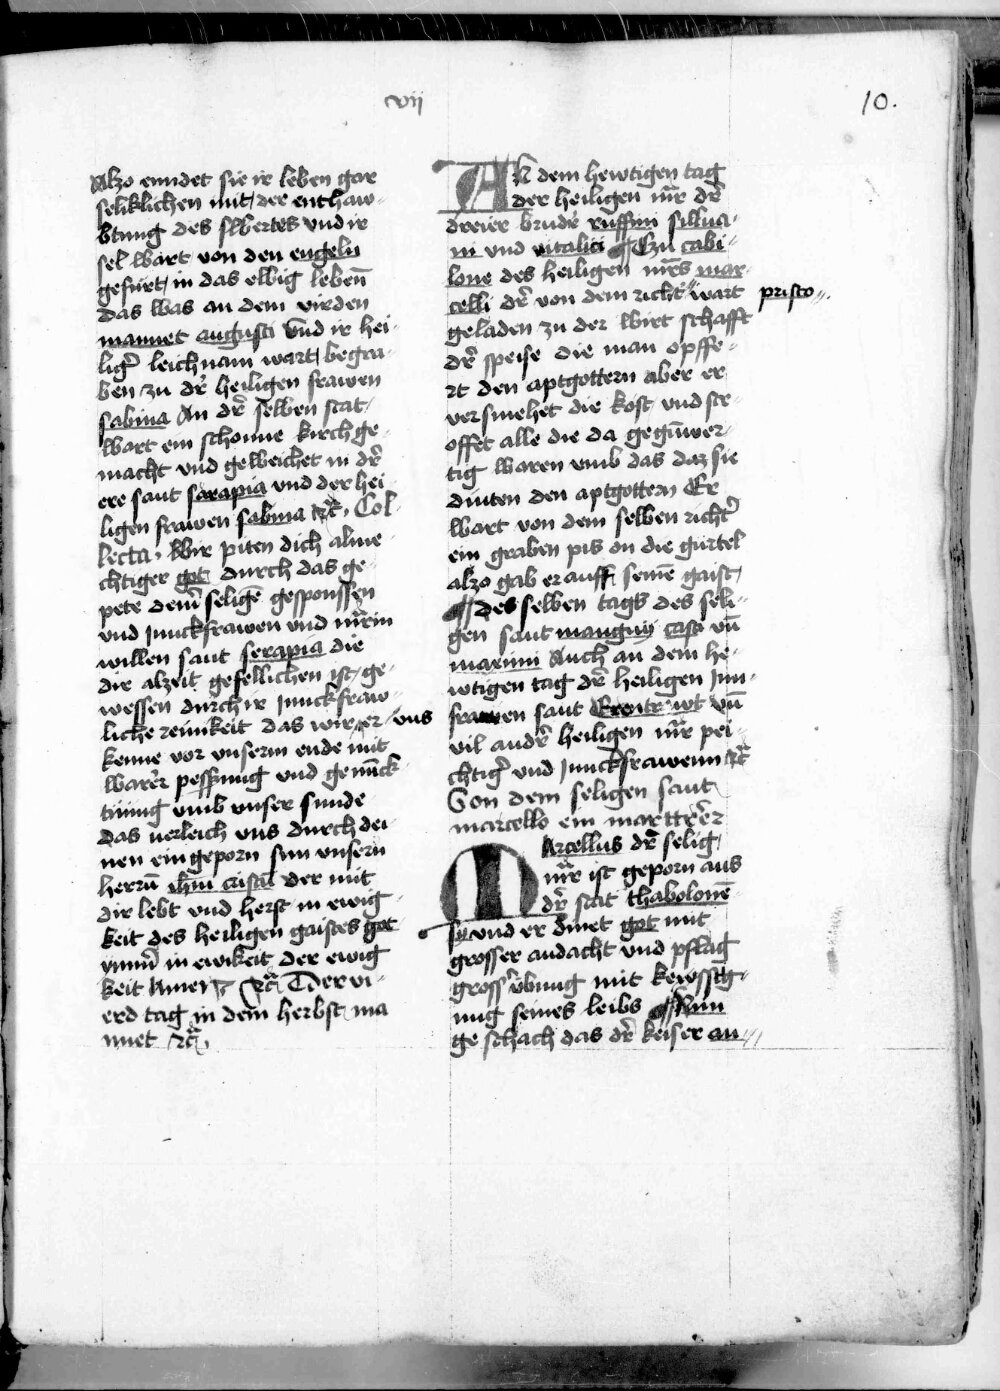 vij
10.
Alzo enndet sie ir leben gar
seliklichen mit der enthaw-
btung des swertes vnd ir
sel wart von den engeln
gefürt in das ewig lebēn
das was an dem virden
mannet augusti vnd ir hei-
ligr̄ leichnam wart begra-
ben zu dr̄ heiligen frawen
sabina An dr̄ selben stat
wart ein schonne kirch ge-
macht vnd geweichet in dr̄
ere sant sarapia vnd der hei-
ligen frawen sabina ꝛc̄ Col-
lecta. Wir piten dich alme-
chtiger got durch das ge-
pete deiner̄ selige gesponssen
vnd junckfrawen vnd mr̄rin
willen sant serapia die
dir alzeit gefellichen ist ge-
wessen durch ir junckfraw-
liche reinikeit das wir er uns
kenne vor vnserm ende mit
warer̄ pessrung vnd genück-
tuung vmb vnser sunde
das verleich vns durch dei-
nen eingeporn sun vnsern
herrn̄ ihm̄ cristū der mit
dir lebt vnd herst in ewig-
keit des heiligen gaistes got
ymm̄ in ewikeit der ewig
keit Amen ꝛc̄ Der vi-
erd tag in dem herbst ma
nnet ꝛc̄.
AN dem hewtigen tag
der heiligen mr̄r dr̄
dreier brudr̄ ruffini sillua-
ni vnd vitalici ¶ Czu cabi-
lone des heiligen mr̄s mar-
celli dr̄ von dem richt" wart
prisco".
geladen zu der wirtschafft
dr̄ speise die man opffe-
rt den aptgottern aber er
versmehet die kost vnd str-
offet alle die da gegūwer-
tig waren vmb das daz sie
dinten den aptgottern Er
wart von dem selben richtr̄
ein graben pis on die gürtel
alzo gab er auff seinē gaist
¶ des selben tags des seli-
gen sant mangnij casti vn̄
maximi Auch an dem he-
wtigen tag dr̄ heiligen jun-
frawen sant Erentrwt vn̄
vil andr̄ heiligen mr̄r pei-
chtigr̄ vnd junckfrawenn ꝛc̄
Von dem seligen sant
marcello ein marttrer̄
MArcellus dr̄ selig
mr̄r ist geporn aus
dr̄ stat thabolonē-
sy vnd er dinet got mit
grosser andacht vnd pflag
grossr̄ übung mit kewsstg-
nug seines leibs ¶ Nun
geschach das dr̄ keiser an"